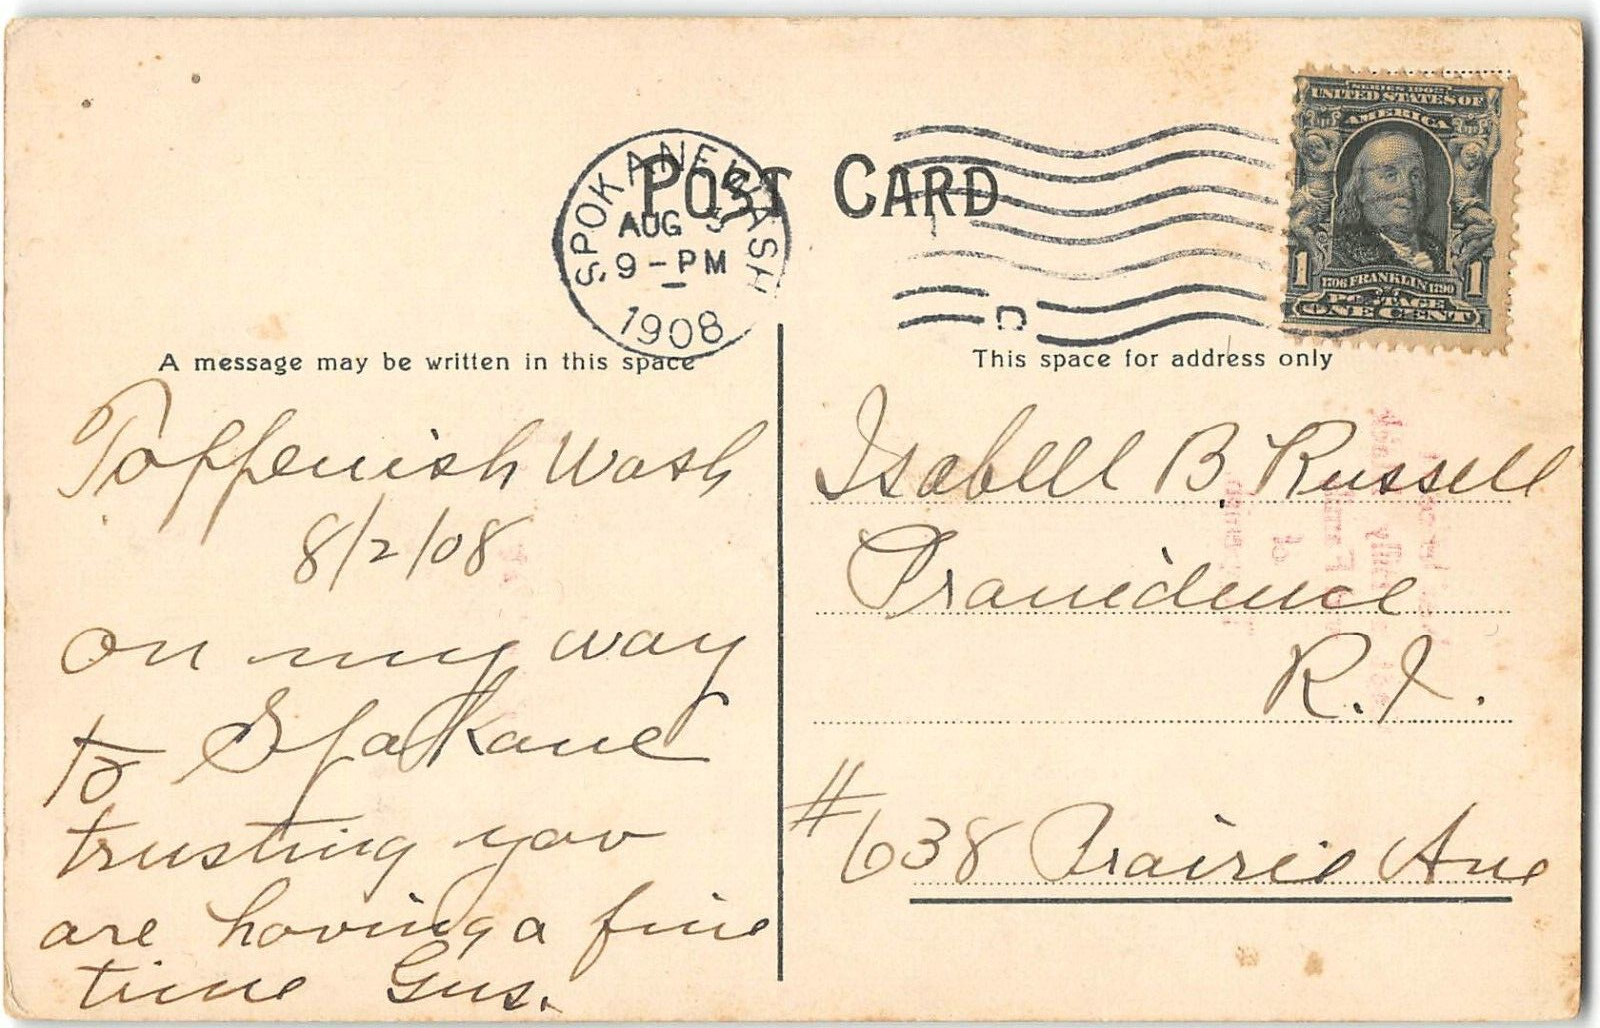 POST CARD
SPOKANE WASH
AUG 3
9-PM
1908
D
SERIES 1902
UNITED STATES OF
AMERICA
1 1
1706 FRANKLIN 1790
POSTAGE
ONE CENT
A message may be written in this space
Toppenish Wash
8/2/08
on my way
to Spokane
trusting you
are having a fine
time Gus.
This space for address only
Isabell B. Russell
Providence
R.I.
#638 Prairie Ave